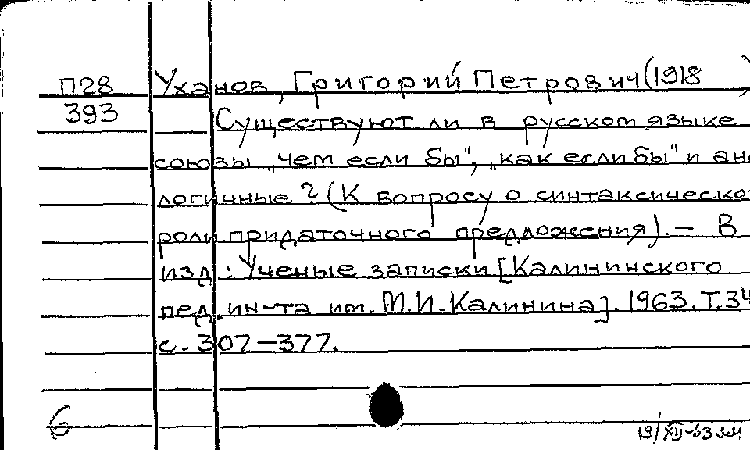 П28 Уханов, Григорий Петрович (1918 )
393 Существуют ли в русском языке
союзы „чем если бы", „как если бы" и ана
логичные? (К вопросу о синтаксическо
роли придаточного предложения). – В
изд.: Ученые записки [Калининского
пед. ин-та им. М.И. Калинина]. 1963. Т. 34
с. 307–377.
6